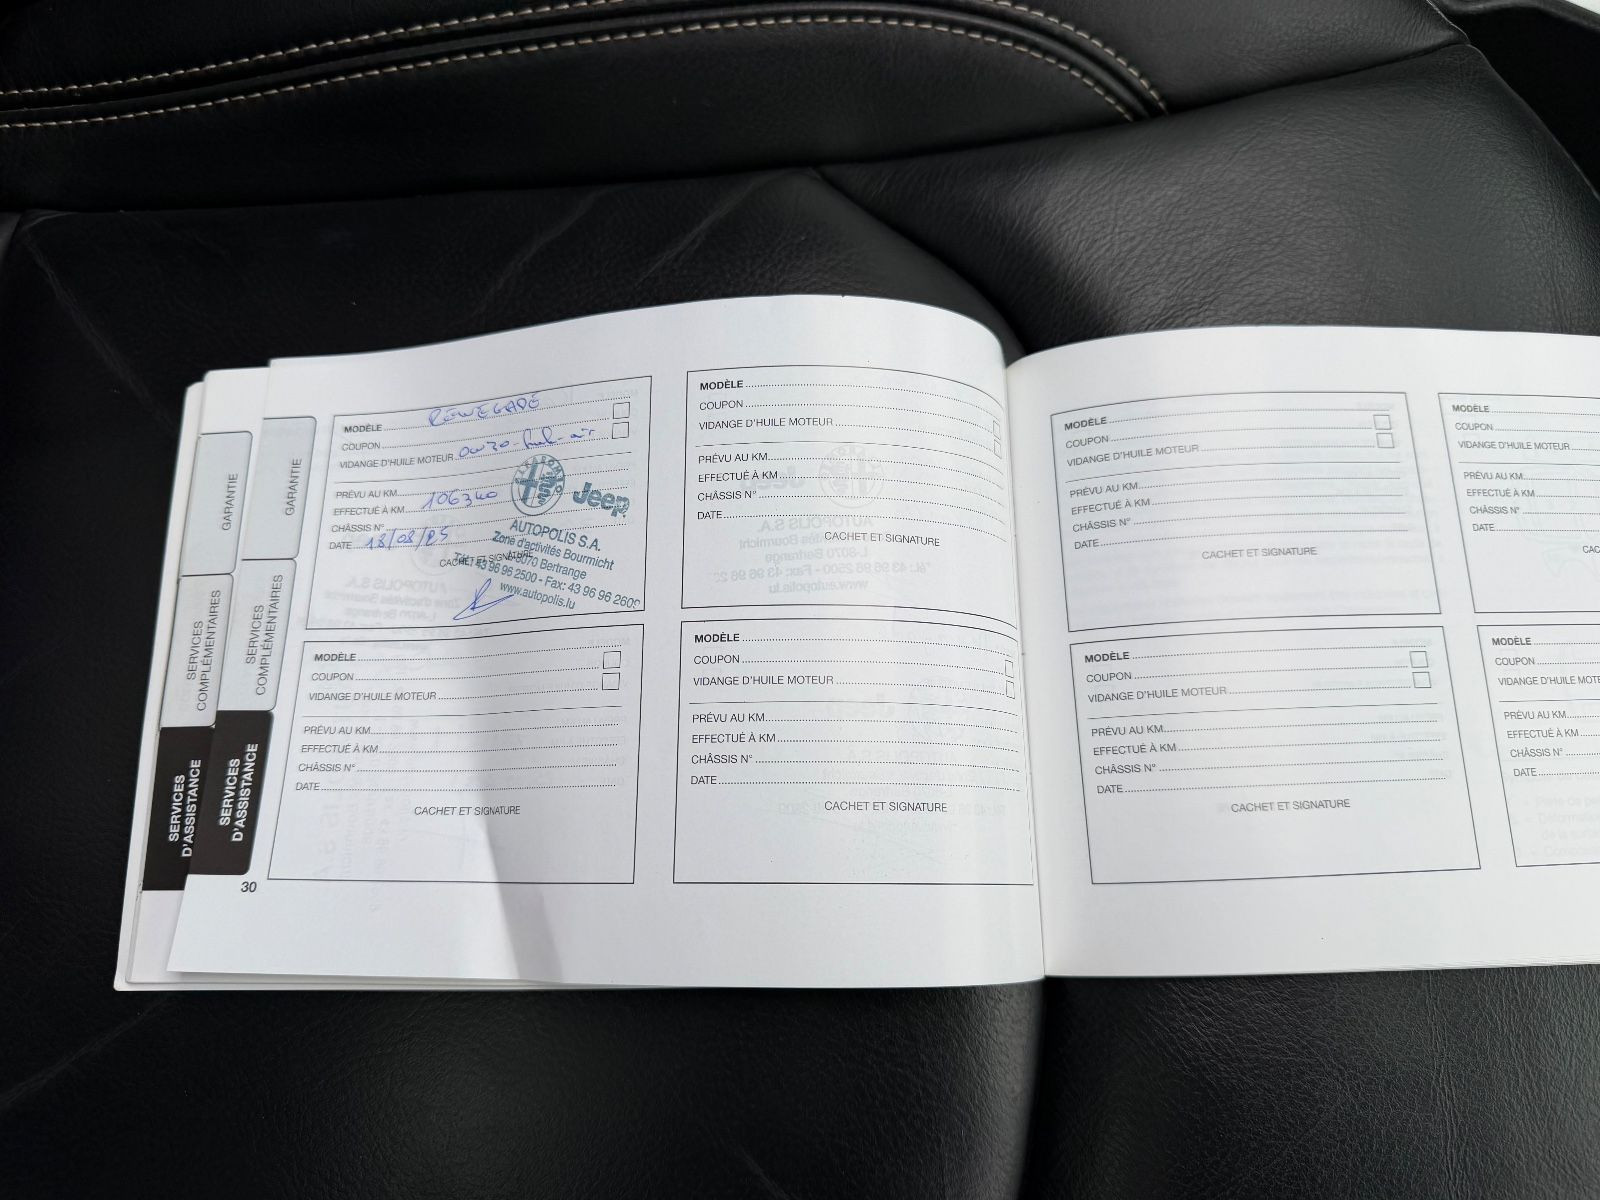 GARANTIE
SERVICES
COMPLÉMENTAIRES
SERVICES
D'ASSISTANCE
GARANTIE
SERVICES
COMPLÉMENTAIRES
SERVICES
D'ASSISTANCE
MODÈLE RENEGADE
COUPON
VIDANGE D'HUILE MOTEUR 0w30-fuel-air
PRÉVU AU KM
EFFECTUÉ À KM 106340
CHÂSSIS N°
DATE 18/08/25
CACHET ET SIGNATURE
ALFA ROMEO
Jeep
AUTOPOLIS S.A.
Zone d'activités Bourmicht
L-8070 Bertrange
Tél.: 43 96 96 2500 - Fax: 43 96 96 2609
www.autopolis.lu
MODÈLE
COUPON
VIDANGE D'HUILE MOTEUR
PRÉVU AU KM
EFFECTUÉ À KM
CHÂSSIS N°
DATE
CACHET ET SIGNATURE
30
MODÈLE
COUPON
VIDANGE D'HUILE MOTEUR
PRÉVU AU KM
EFFECTUÉ À KM
CHÂSSIS N°
DATE
CACHET ET SIGNATURE
MODÈLE
COUPON
VIDANGE D'HUILE MOTEUR
PRÉVU AU KM
EFFECTUÉ À KM
CHÂSSIS N°
DATE
CACHET ET SIGNATURE
MODÈLE
COUPON
VIDANGE D'HUILE MOTEUR
PRÉVU AU KM
EFFECTUÉ À KM
CHÂSSIS N°
DATE
CACHET ET SIGNATURE
MODÈLE
COUPON
VIDANGE D'HUILE MOTEUR
PRÉVU AU KM
EFFECTUÉ À KM
CHÂSSIS N°
DATE
CACHET ET SIGNATURE
MODÈLE
COUPON
VIDANGE D'HUILE MOTEUR
PRÉVU AU KM
EFFECTUÉ À KM
CHÂSSIS N°
DATE
CAC
MODÈLE
COUPON
VIDANGE D'HUILE MOTE
PRÉVU AU KM
EFFECTUÉ À KM
CHÂSSIS N°
DATE